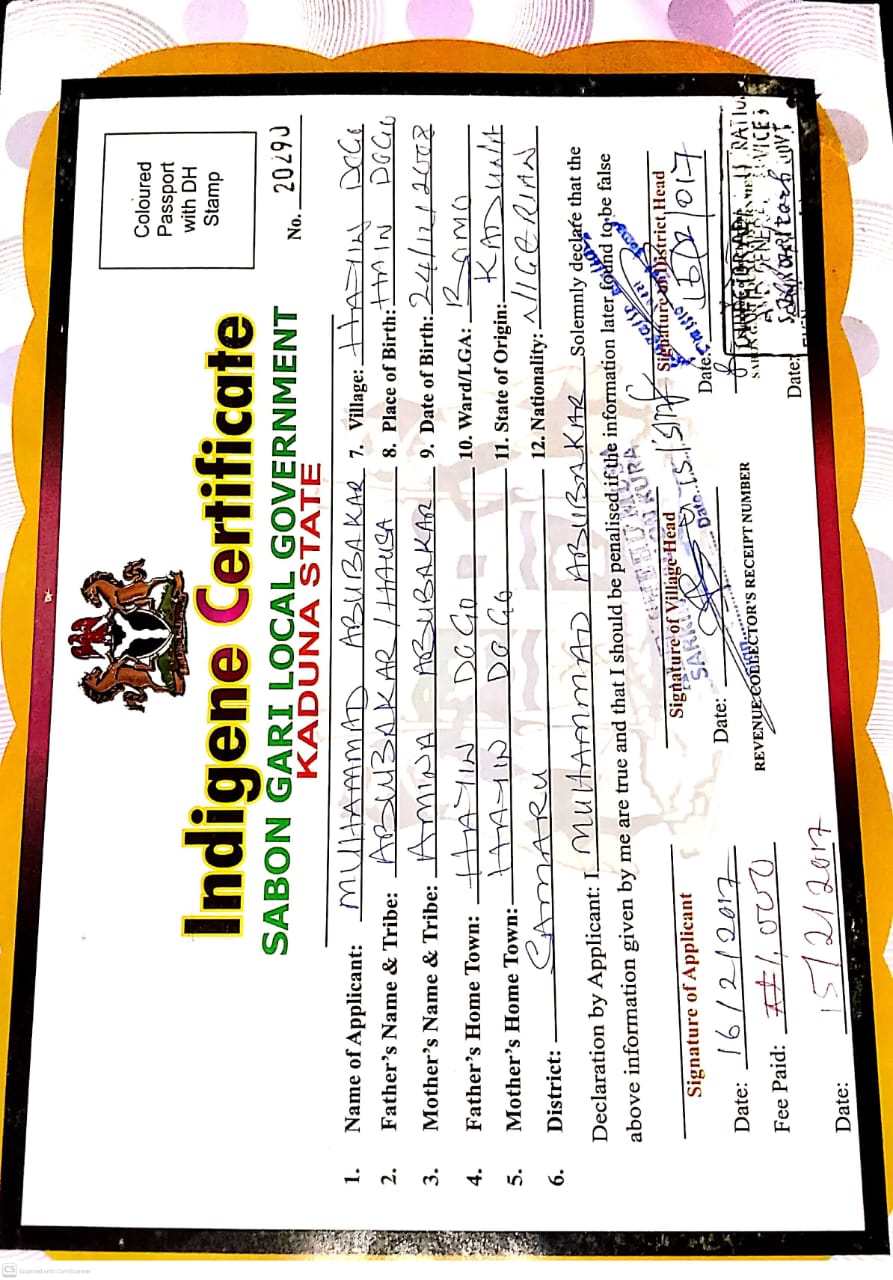 Indigene Certificate
SABON GARI LOCAL GOVERNMENT
KADUNA STATE
Coloured
Passport
with DH
Stamp
No. 20290
1. Name of Applicant: MUHAMMAD ABUBAKAR 7. Village: HAYIN DOGO
2. Father's Name & Tribe: ABUBAKAR / HAUSA 8. Place of Birth: HAIN DOGO
3. Mother's Name & Tribe: AMINA ABUBAKAR 9. Date of Birth: 24/12/2008
4. Father's Home Town: HAYIN DOGO 10. Ward/LGA: BOMO
5. Mother's Home Town: HAYIN DOGO 11. State of Origin: KADUNA
6. District: SAMARU 12. Nationality: NIGERIAN
Declaration by Applicant: I MUHAMMAD ABUBAKAR Solemnly declare that the
above information given by me are true and that I should be penalised if the information later found to be false
Signature of Applicant
Signature of Village Head
Signature of District Head
SARKI
Date: 16/2/2017
Date:
Date:
Fee Paid: ₦1,000
REVENUE COLLECTOR'S RECEIPT NUMBER
Date: 15/2/2017
Date:
CS Scanned with CamScanner